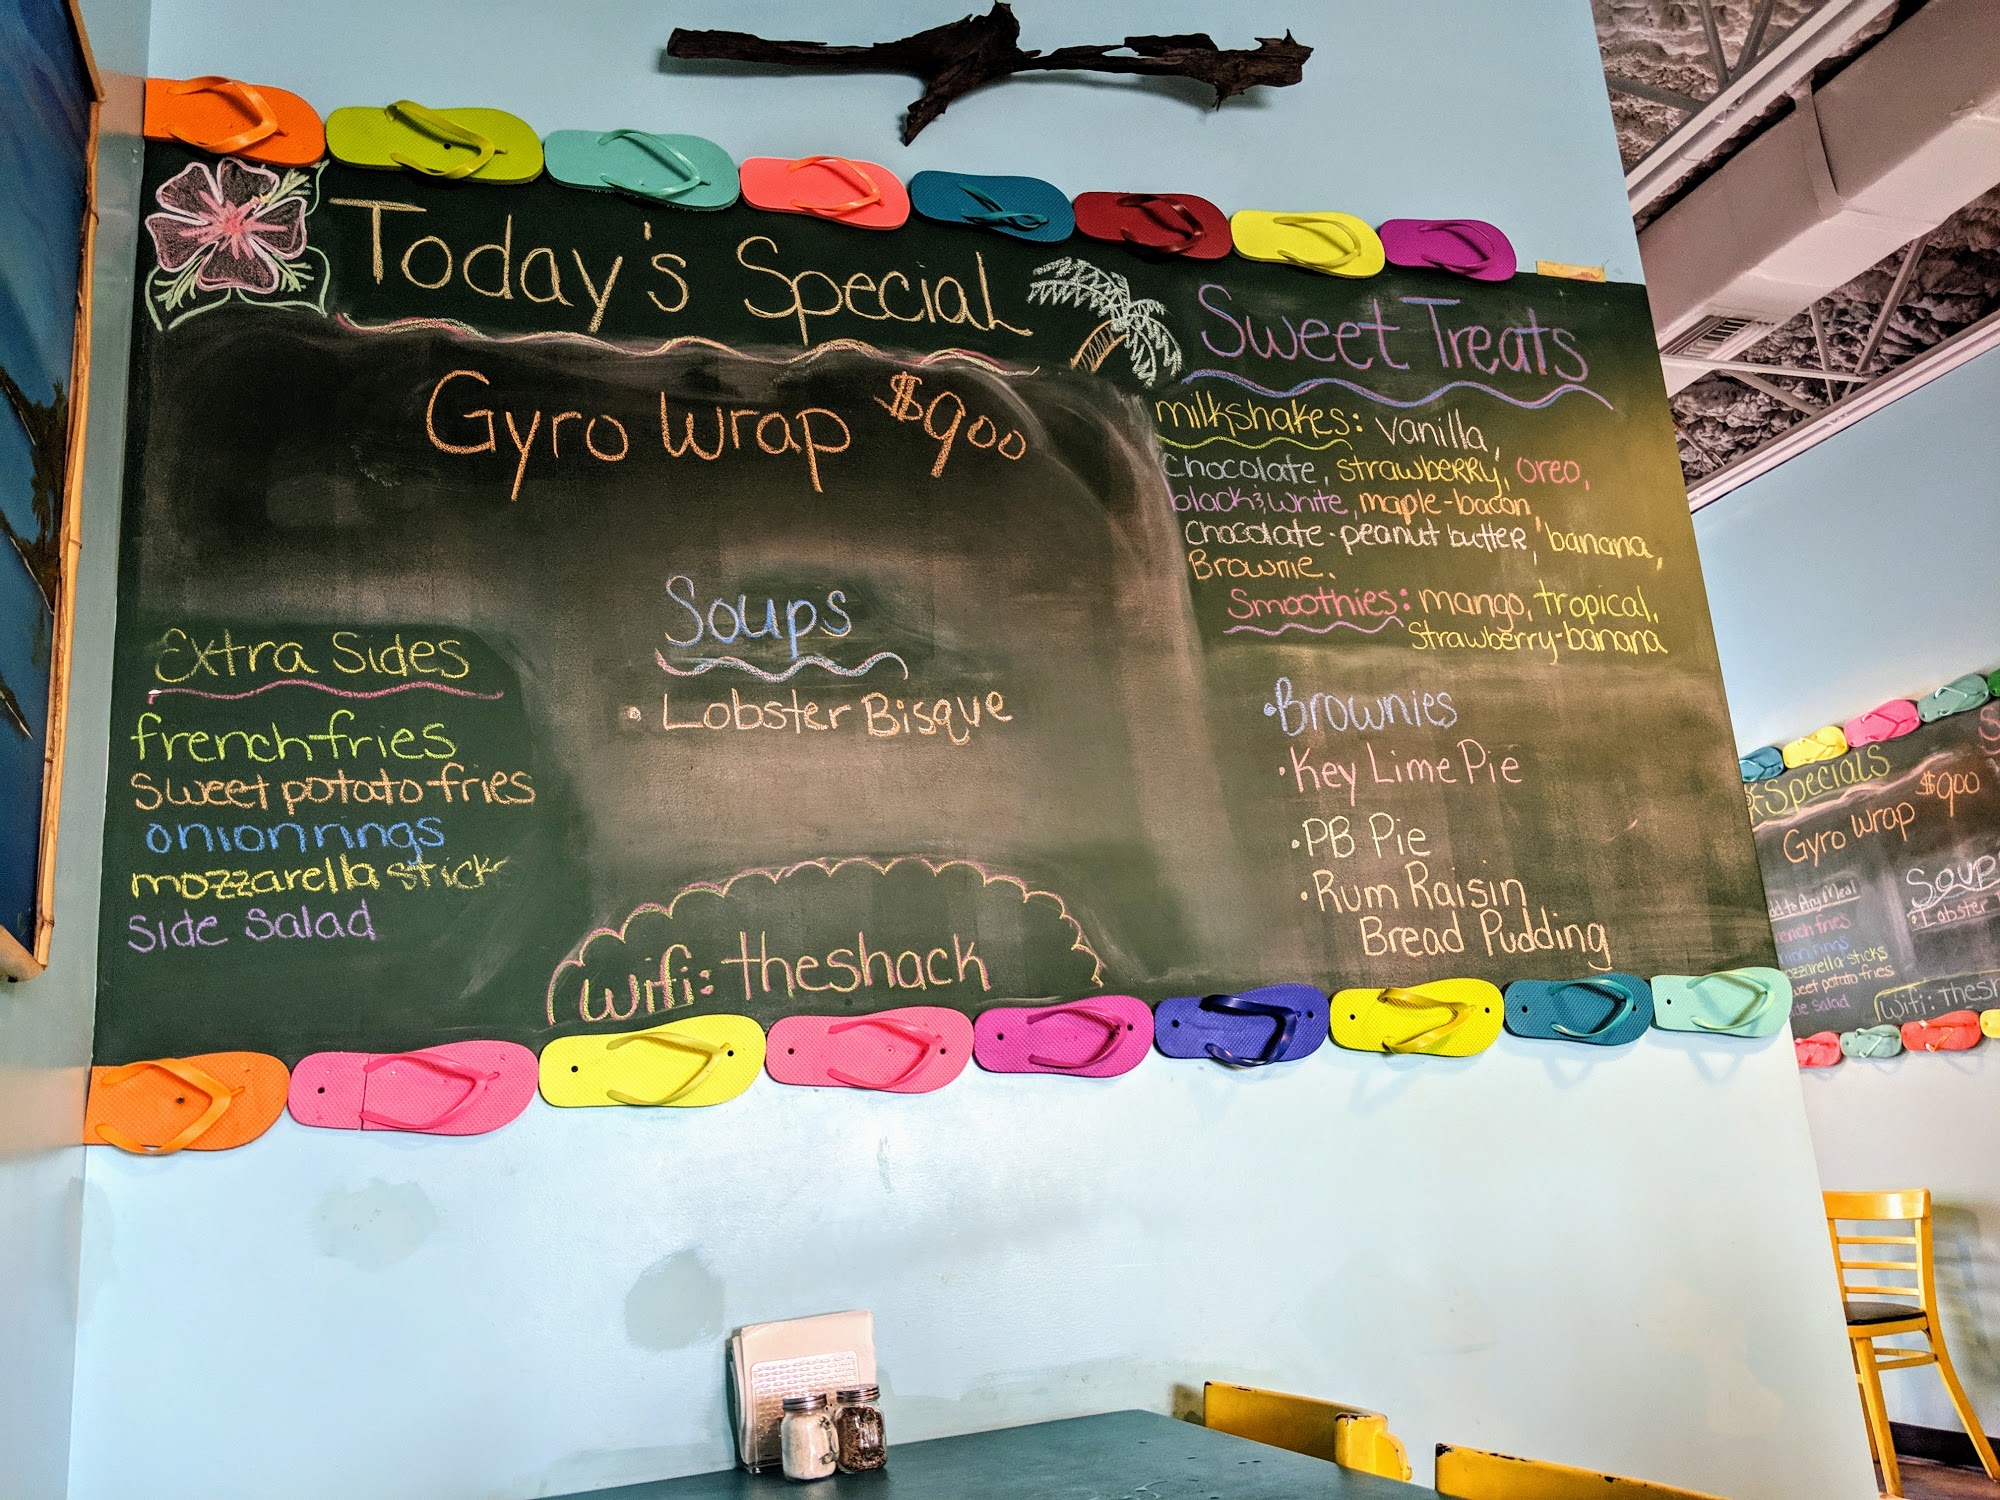 Today's Special
Gyro Wrap $9.00
Soups
• Lobster Bisque
Extra Sides
french fries
sweet potato fries
onion rings
mozzarella stick
side salad
wifi: theshack
Sweet Treats
milkshakes: vanilla,
Chocolate, strawberry, oreo,
black & white, maple-bacon,
chocolate-peanut butter, banana,
Brownie.
Smoothies: mango, tropical,
Strawberry-banana
• Brownies
• Key Lime Pie
• PB Pie
• Rum Raisin
Bread Pudding
Specials
Gyro Wrap $9.00
Soup
• Lobster
to Any Meal
rench fries
nion rings
ozzarella sticks
weet potato fries
de salad
Wifi: thesh